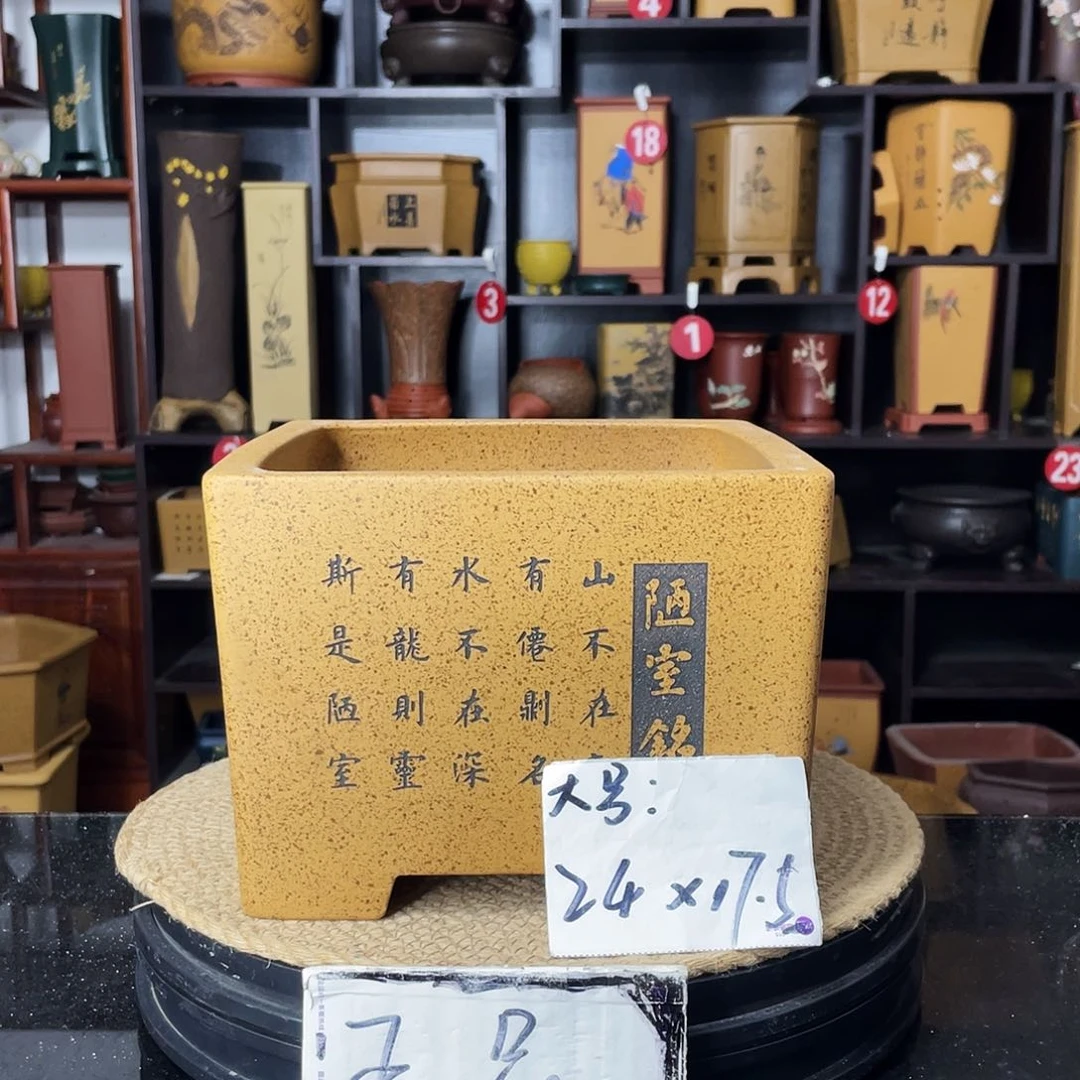 陋室銘
山不在
有僊則名
水不在深
有龍則靈
斯是陋室
大号:
24×17.5
4
18
3
1
12
23